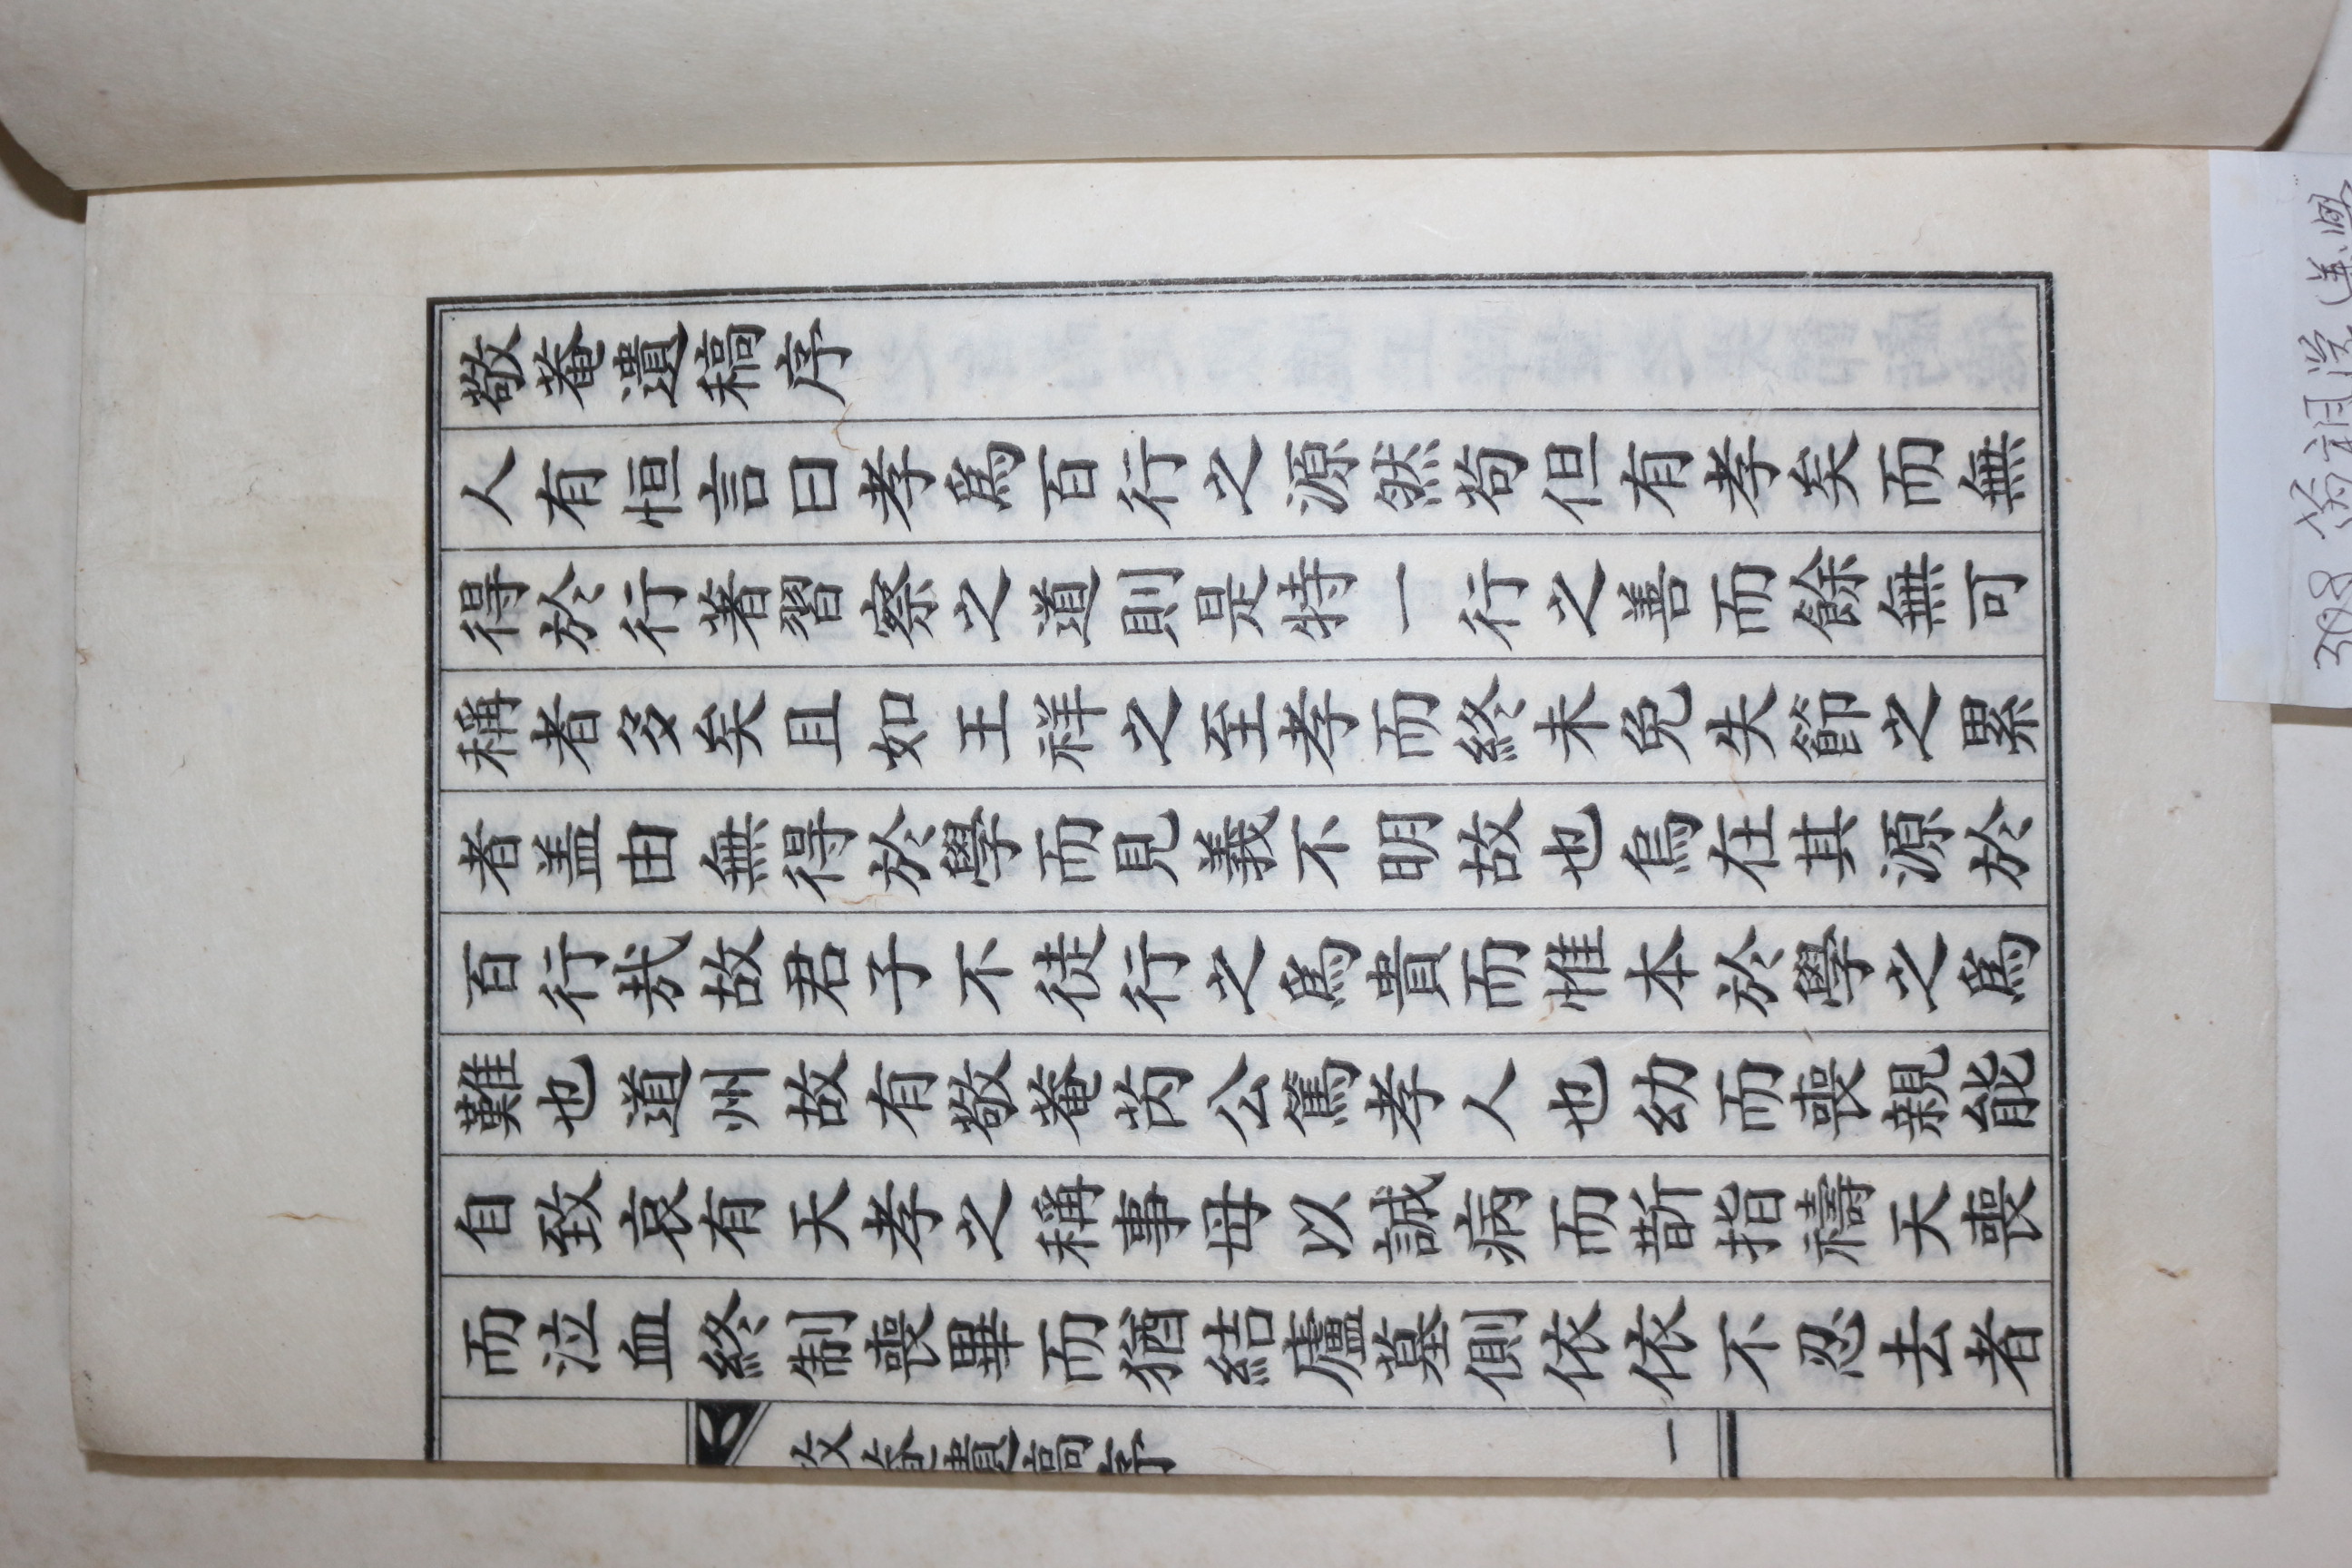 敬菴遺稿序
人有恒言曰孝爲百行之源然苟但有孝矣而無
得於行著習察之道則是特一行之善而餘無可
稱者多矣且如王祥之至孝而終未免失節之累
者盖由無得於學而見義不明故也烏在其源於
百行㢤故君子不徒行之爲貴而惟本於學之爲
難也道州故有敬菴芮公篤孝人也幼而喪親能
自致哀有天孝之稱事母以誠病而斮指禱天喪
而泣血終制喪畢而猶結廬墓側依依不忍去者
敬菴遺稿序
一
308